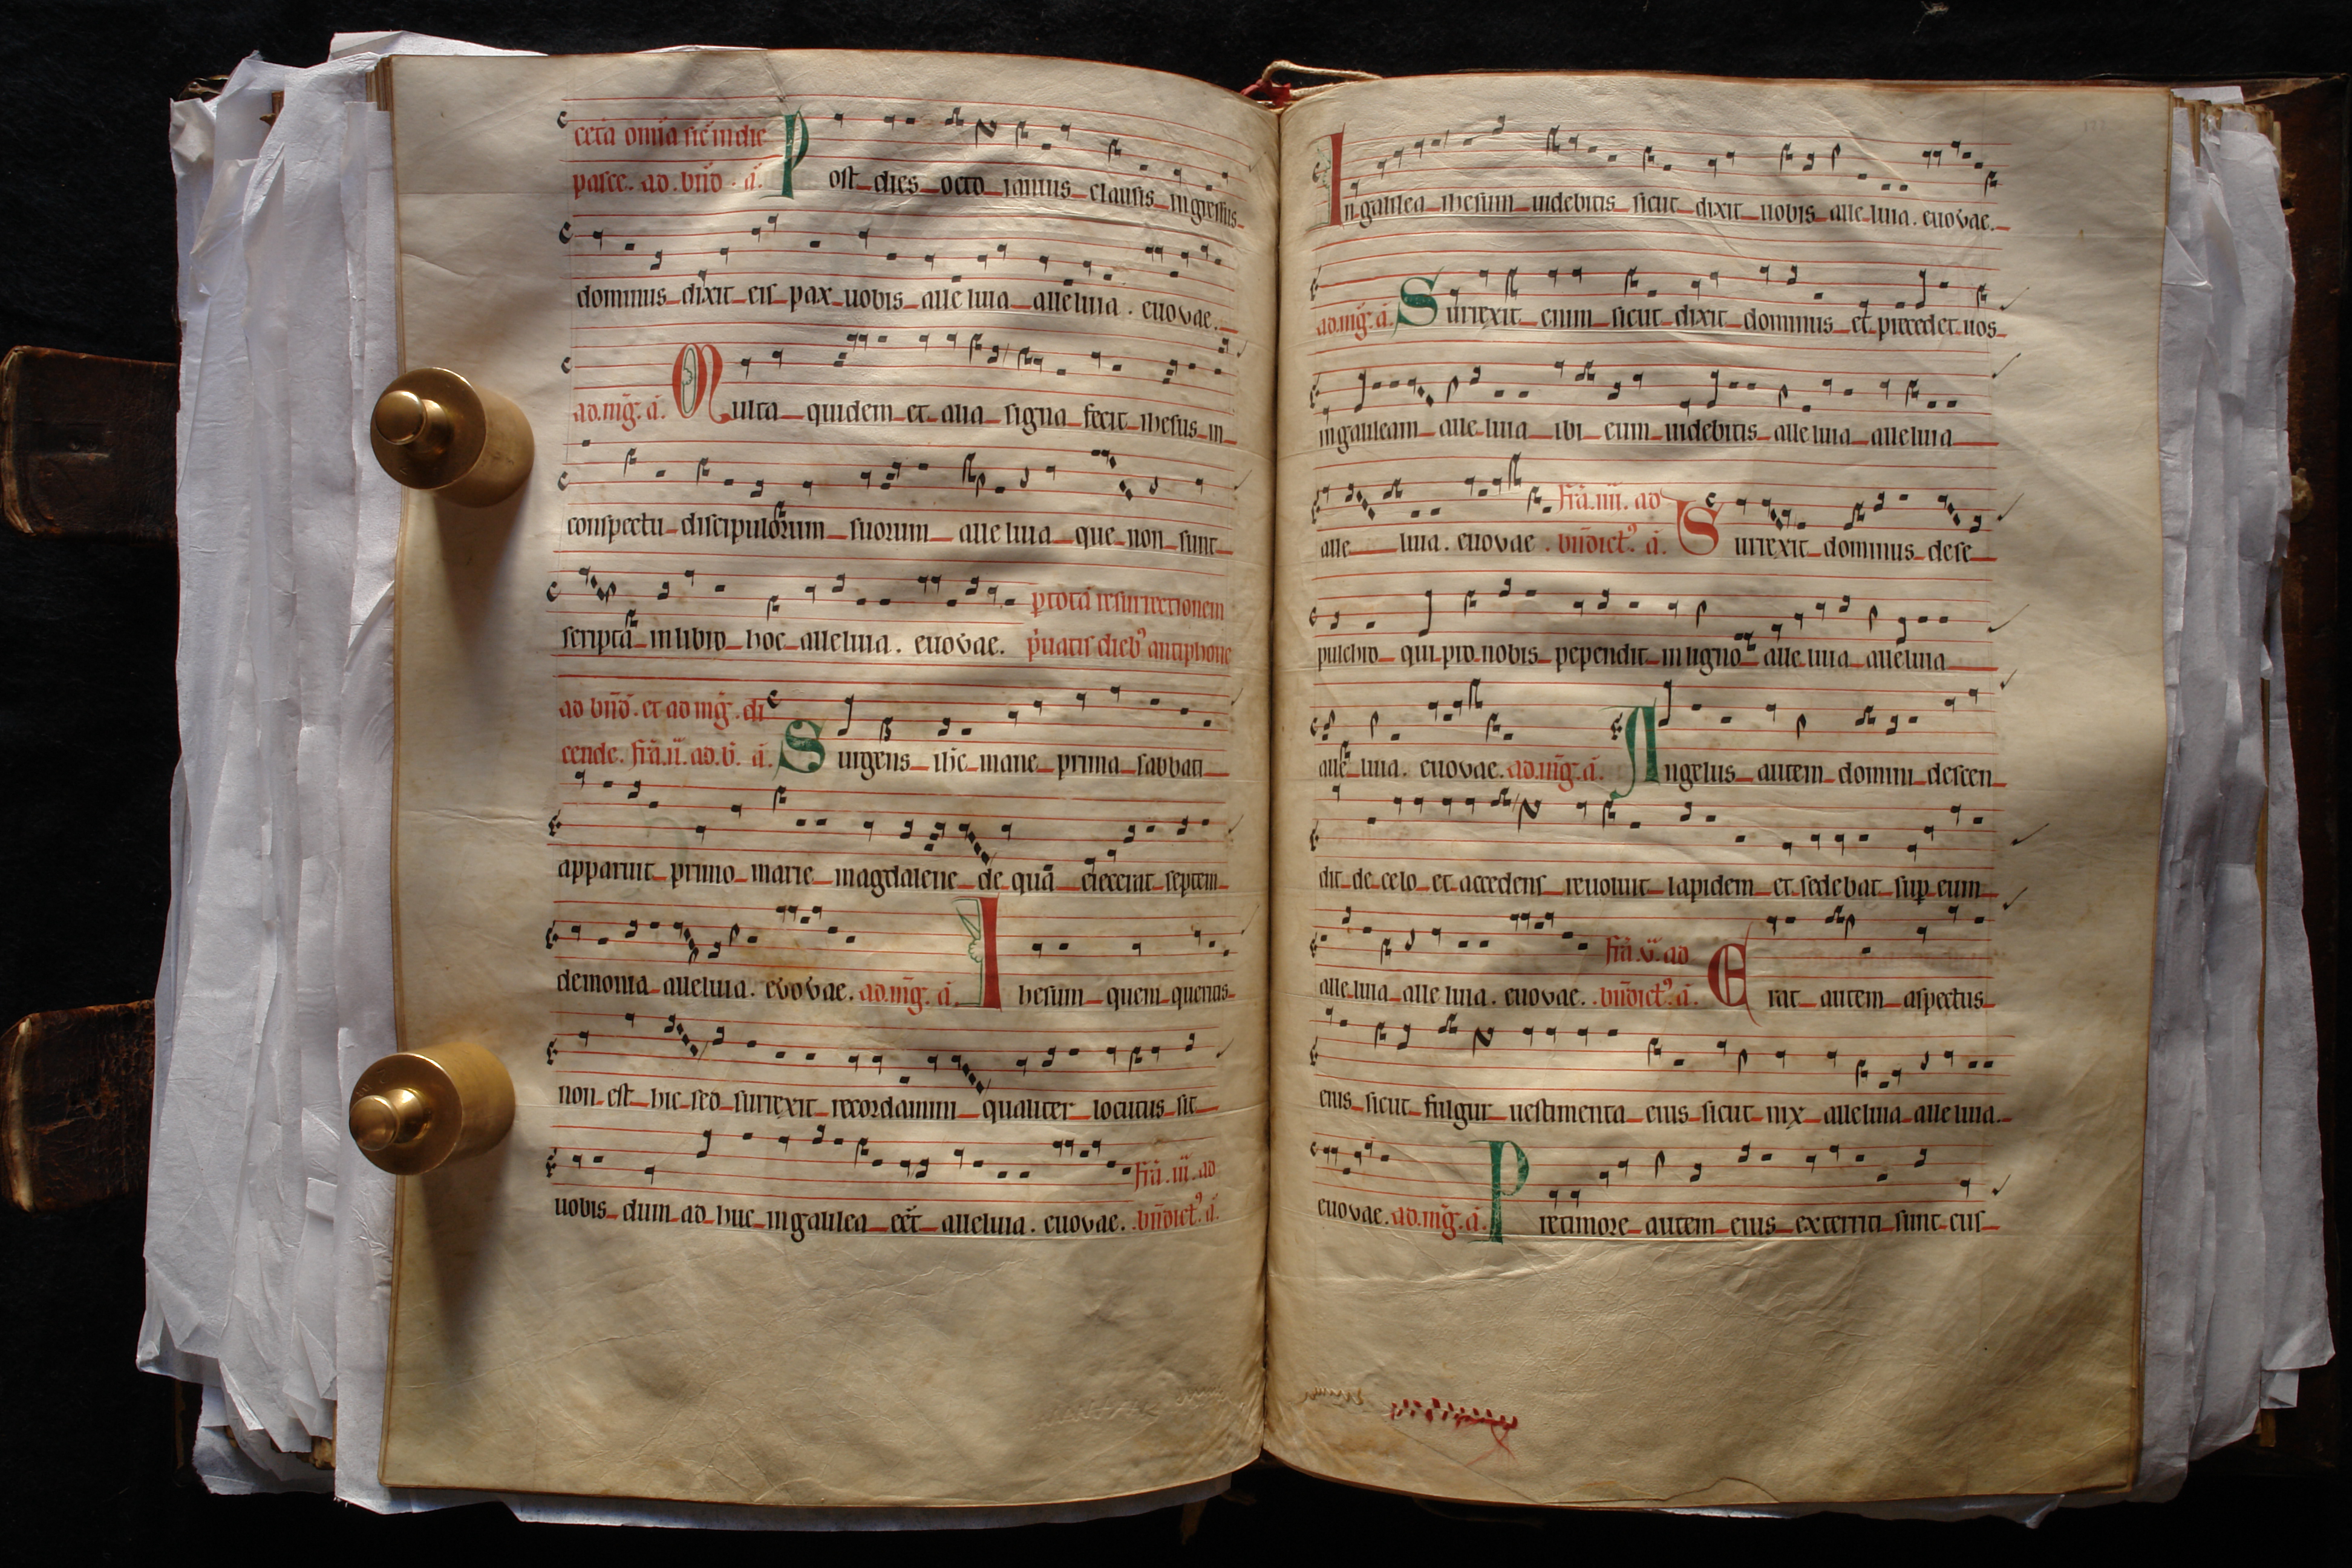 cetä omïa sic̄ in die
pasce. ad. bn̄d. a̅. Post dies octo ianuis clausis ingressus
dominus dixit eis pax uobis alleluia alleluia. euovae.
ad. mḡ. a̅. Multa quidem et alia signa fecit ihesus in
conspectu discipulorum suorum alleluia que non sunt
scripta in libro hoc alleluia. euovae. p totā resurrectionem
p̄uatis dieb9 antiphone
ad bn̄d. et ad mḡ. di
cende. fr̄a. ii. ad. b̄. a̅. Surgens ih̄c mane prima sabbati
apparuit primo marie magdalene de quā eiecerat septem
demonia alleluia. evovae. ad. mḡ. a̅. Ihesum quem queritis
non est hic sed surrexit recordamini qualiter locutus sit
uobis dum ad huc in galilea eēt alleluia. euovae. fr̄a. iii. ad
bn̄dict9. a̅.
In galilea ihesum uidebitis sicut dixit uobis alleluia. euovae.
ad. mḡ. a̅. Surrexit enim sicut dixit dominus et precedet uos
in galileam alleluia ibi eum uidebitis alleluia alleluia
alleluia. euovae. fr̄a. iiii. ad bn̄dict9. a̅. Surrexit dominus de se
pulchro qui pro nobis pependit in ligno alleluia alleluia
alleluia. euovae. ad. mḡ. a̅. Angelus autem domini descen
dit de celo et accedens reuoluit lapidem et sedebat sup̱ eum
alleluia alleluia. euovae. fr̄a. v. ad bn̄dict9. a̅. Erat autem aspectus
eius sicut fulgur uestimenta eius sicut nix alleluia alleluia.
euovae. ad. mḡ. a̅. Pre timore autem eius exterriti sunt cus